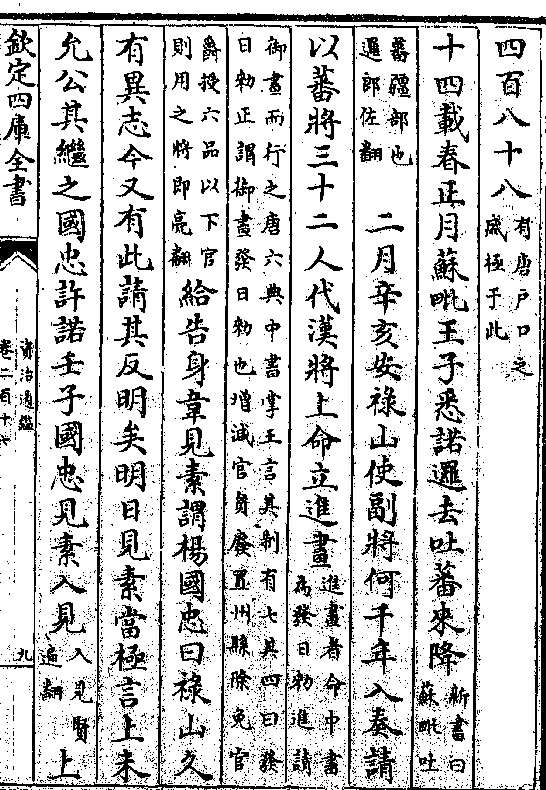 四百八十八有唐戶口之
盛極于此
十四載春正月蘇毗王子悉諾邏去吐蕃來降新書曰
蘇毗吐
蕃疆部也
邏郎佐翻
二月辛亥安祿山使副將何千年入奏請
以蕃將三十二人代漢將上命立進畫進畫者命中書
為發日勅進請
御畫而行之唐六典中書掌王言其制有七其四曰發
日勅正謂御畫發日勅也增減官員廢置州縣除免官
爵授六品以下官
則用之將即亮翻
給告身韋見素謂楊國忠曰祿山久
有異志今又有此請其反明矣明日見素當極言上未
允公其繼之國忠許諾壬子國忠見素入見入見賢
遍翻
上
欽定四庫全書
資治通鑑
卷二百十
九